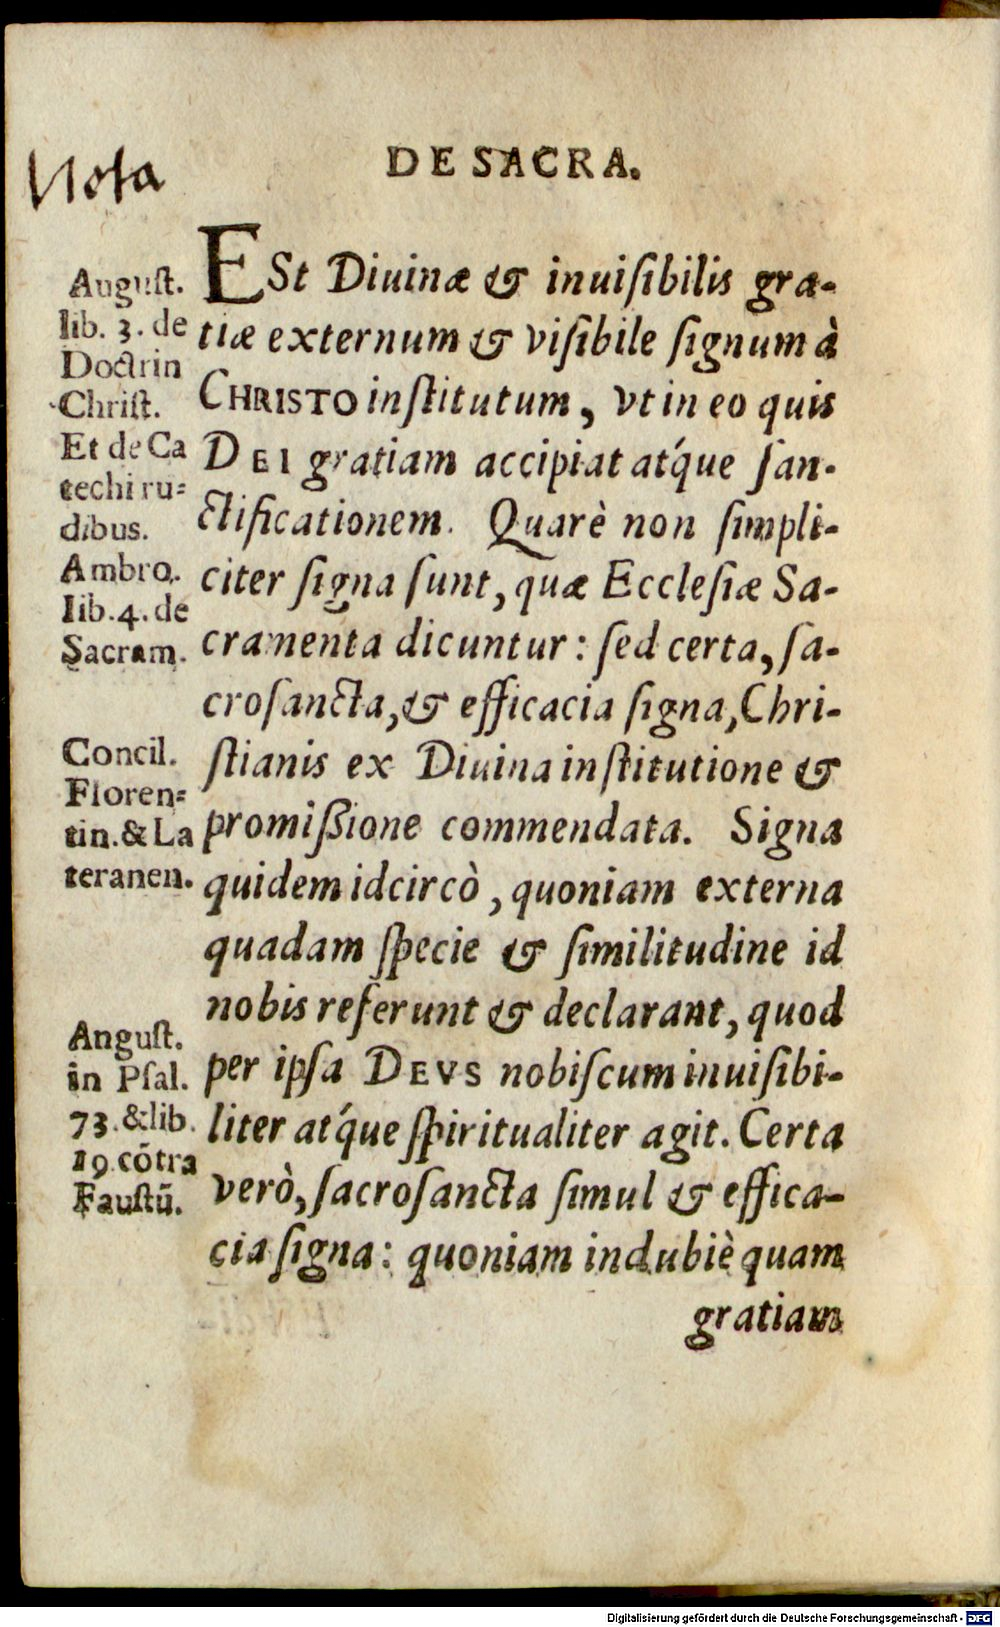 Nota
DE SACRA.
August.
lib. 3. de
Doctrin
Christ.
Et de Ca
techi ru=
dibus.
Ambro.
lib. 4. de
Sacram.
Concil.
Floren=
tin. & La
teranen.
Angust.
in Psal.
73. & lib.
19. cõtra
Faustũ.
ESt Diuinæ & inuiſibilis gra-
tiæ externum & viſibile ſignum à
CHRISTO inſtitutum, vt in eo quis
DEI gratiam accipiat atq́ue ſan-
ctificationem. Quarè non ſimpli-
citer ſigna ſunt, quæ Eccleſiæ Sa-
cramenta dicuntur: ſed certa, ſa-
croſancta, & efficacia ſigna, Chri-
ſtianis ex Diuina inſtitutione &
promiſsione commendata. Signa
quidem idcircò, quoniam externa
quadam ſpecie & ſimilitudine id
nobis referunt & declarant, quod
per ipſa DEVS nobiſcum inuiſibi-
liter atq́ue ſpiritualiter agit. Certa
verò, ſacroſancta ſimul & effica-
cia ſigna: quoniam indubiè quam
gratiam
Digitalisierung gefördert durch die Deutsche Forschungsgemeinschaft - DFG